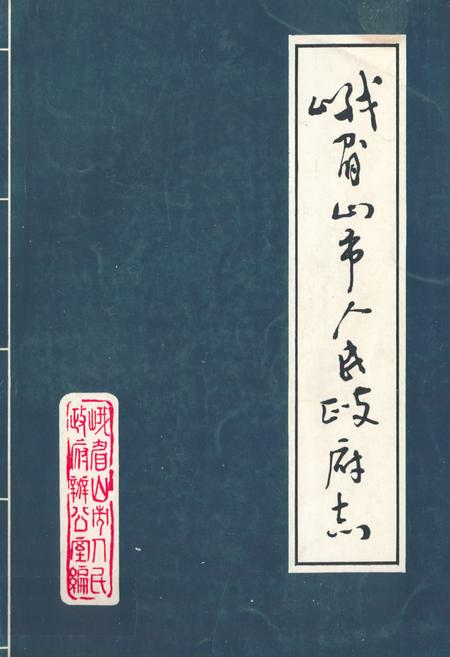 峨眉山市人民政府志
峨眉山市人民
政府办公室编